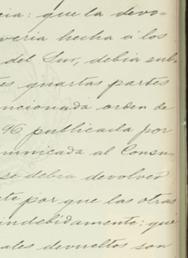 cia: que la devo-
veria hecha á los
del Sur, debia sub-
tes quartas partes
ncionada orden de
96 publicada por
municada al Consu-
se debia devolver
te por que las otras
indebidamente: que
ales devueltos son